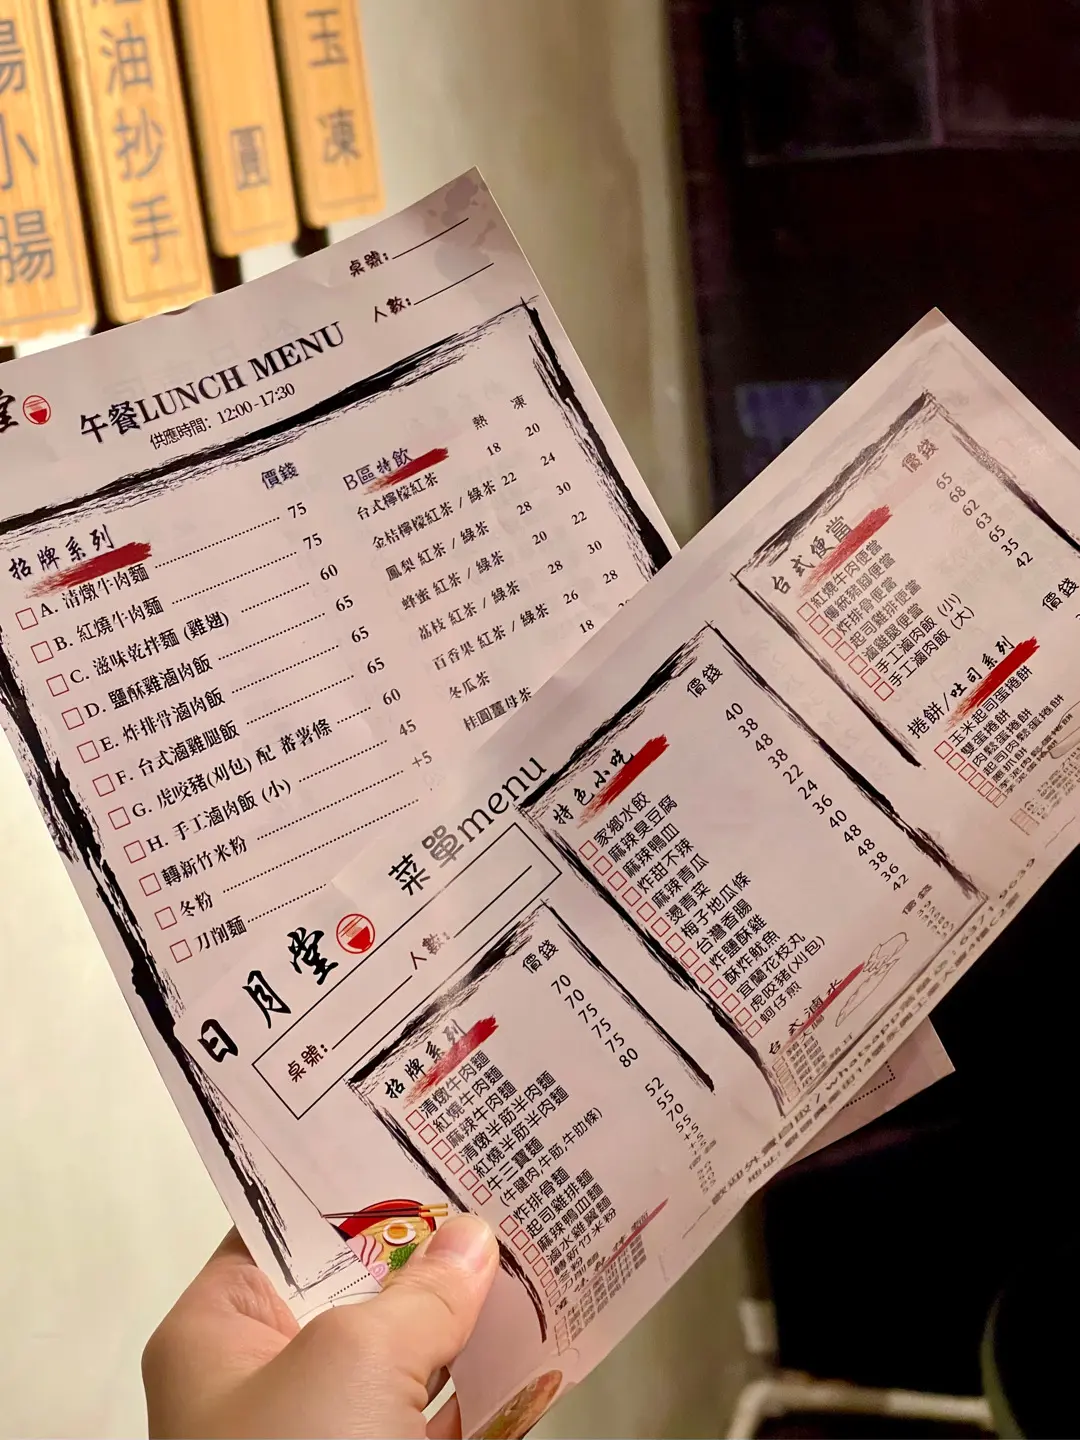 腸小腸
油抄手
圓
玉凍
桌號:
人數:
堂
午餐LUNCH MENU
供應時間: 12:00-17:30
招牌系列 價錢
A. 清燉牛肉麵 75
B. 紅燒牛肉麵 75
C. 滋味乾拌麵 (雞翅) 60
D. 鹽酥雞滷肉飯 65
E. 炸排骨滷肉飯 65
F. 台式滷雞腿飯 65
G. 虎咬豬(刈包) 配 蕃薯條 60
H. 手工滷肉飯 (小) 45
轉新竹米粉 +5
冬粉
刀削麵
B區特飲 熱 凍
台式檸檬紅茶 18 20
金桔檸檬紅茶 / 綠茶 22 24
鳳梨 紅茶 / 綠茶 28 30
蜂蜜 紅茶 / 綠茶 20 22
荔枝 紅茶 / 綠茶 28 30
百香果 紅茶 / 綠茶 26 28
冬瓜茶 18
桂圓薑母茶
日月堂
菜單menu
桌號:
人數:
招牌系列 價錢
清燉牛肉麵 70
紅燒牛肉麵 70
麻辣牛肉麵 75
清燉半筋半肉麵 75
紅燒半筋半肉麵 75
牛三寶麵 80
(牛腱肉,牛筋,牛肋條)
炸排骨麵 52
起司雞排麵 55
麻辣鴨血麵 70
滷水雞翼麵 55
轉新竹米粉 +5
特色小吃 價錢
家鄉水餃 40
麻辣臭豆腐 38
麻辣鴨血 48
炸甜不辣 38
麻辣青瓜 22
燙青菜 24
梅子地瓜條 36
台灣香腸 40
炸鹽酥雞 48
酥炸魷魚 48
宜蘭花枝丸 38
虎咬豬(刈包) 36
蚵仔煎 42
台式滷水
台式便當 價錢
紅燒牛肉便當 65
傳統豬腳便當 68
炸排骨便當 62
起司雞排便當 63
滷雞腿便當 65
手工滷肉飯 (小) 35
手工滷肉飯 (大) 42
捲餅/吐司系列 價錢
玉米起司蛋捲餅
雙蛋捲餅
肉鬆蛋捲餅
起司肉鬆蛋捲餅
蔥抓餅